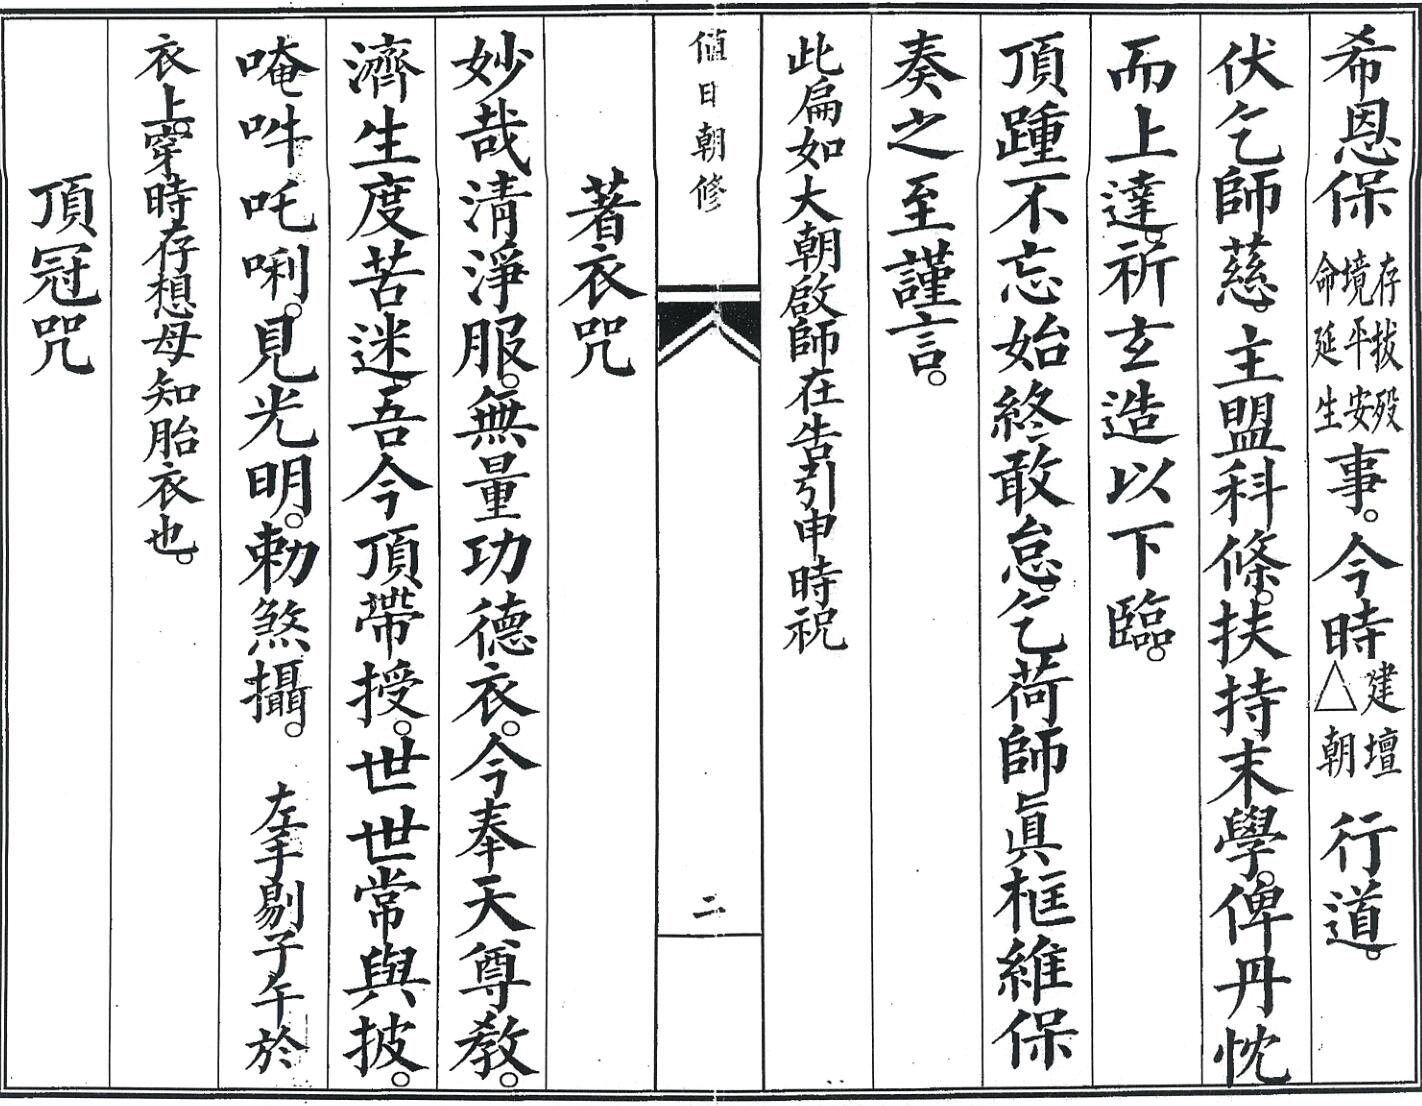 希恩保存拔殁境平安命延生事。今時建壇△朝行道。
伏乞師慈。主盟科條。扶持末學。俾丹忱
而上達。祈玄造以下臨。
頂踵不忘始終敢怠。乞荷師眞框維保
奏之至謹言。
此扁如大朝啟師在告引申時祝
値日朝修
二
著衣咒
妙哉清淨服。無量功德衣。今奉天尊教。
濟生度苦迷。吾今頂帶授。世世常與披。
唵吽吒唎。見光明。勅煞攝。 左手剔子午於
衣上。穿時存想母知胎衣也。
頂冠咒